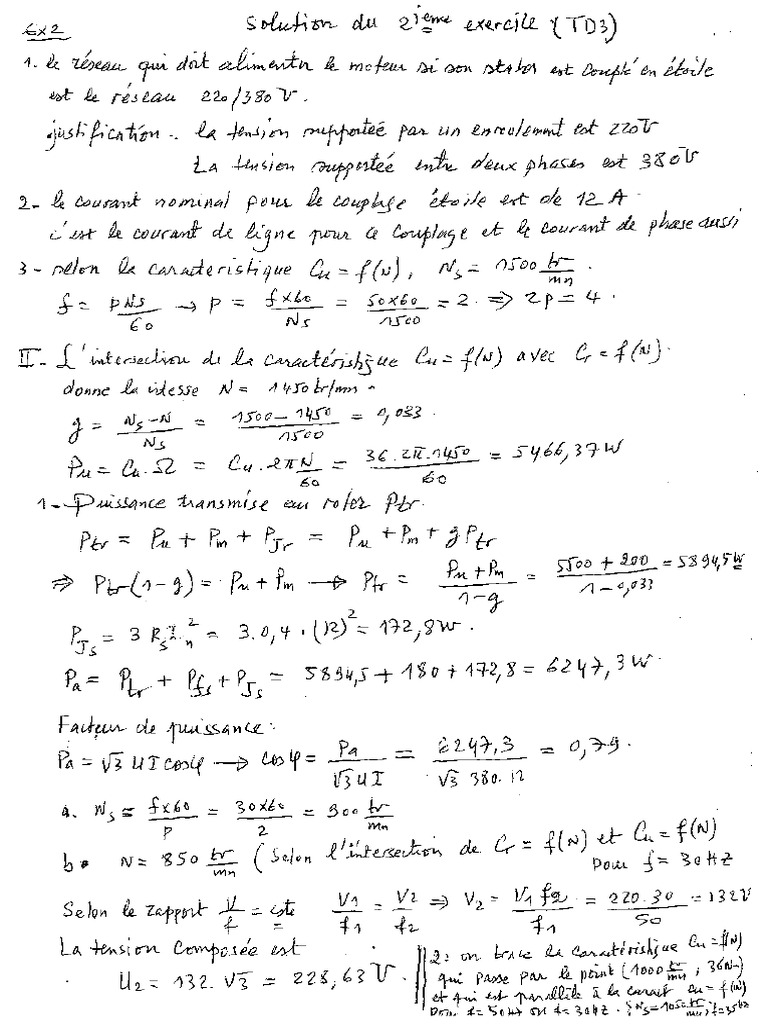 Ex2 Solution du 2ième exercice (TD3)
1. le réseau qui doit alimenter le moteur si son stator est couplé en étoile
est le réseau 220/380 V.
justification.. la tension supportée par un enroulement est 220V
La tension supportée entre deux phases est 380V
2- le courant nominal pour le couplage étoile est de 12 A.
c'est le courant de ligne pour ce couplage et le courant de phase aussi
3- selon la caractéristique Cu = f(N), Ns = 1500 tr/mn.
f = pNs/60 → p = f×60/Ns = 50×60/1500 = 2. ⇒ 2p = 4.
II- L'intersection de la caractéristique Cu = f(N) avec Cr = f(N).
donne la vitesse N = 1450 tr/mn.
g = Ns-N/Ns = 1500-1450/1500 = 0,033.
Pu = Cu.Ω = Cu.2πN/60 = 36.2π.1450/60 = 5466,37 W
1- Puissance transmise au rotor Ptr.
Ptr = Pu + Pm + PJr = Pu + Pm + gPtr
⇒ Ptr(1-g) = Pu + Pm → Ptr = Pu+Pm/1-g = 5500+200/1-0,033 = 5894,5 W
PJs = 3 Rs In² = 3.0,4.(12)² = 172,8 W.
Pa = Ptr + Pfs + PJs = 5894,5 + 180 + 172,8 = 6247,3 W.
Facteur de puissance:
Pa = √3 U I cosφ → cosφ = Pa/√3 U I = 6247,3/√3 380.12 = 0,79.
a. Ns = f×60/p = 30×60/2 = 300 tr/mn
b. N = 850 tr/mn (Selon l'intersection de Cr = f(N) et Cu = f(N)
pour f = 30 Hz
Selon le rapport V/f = cste V1/f1 = V2/f2 ⇒ V2 = V1 f2/f1 = 220.30/50 = 132V
La tension composée est
U2 = 132.√3 = 228,63 V.
2: on trace la caractéristique Cu = f(N)
qui passe par le point (1000 tr/mn, 36Nm)
et qui est parallèle à la caract Cu = f(N)
pour f = 50Hz ou f = 30Hz. Ns = 1050 tr/mn; f = 35Hz